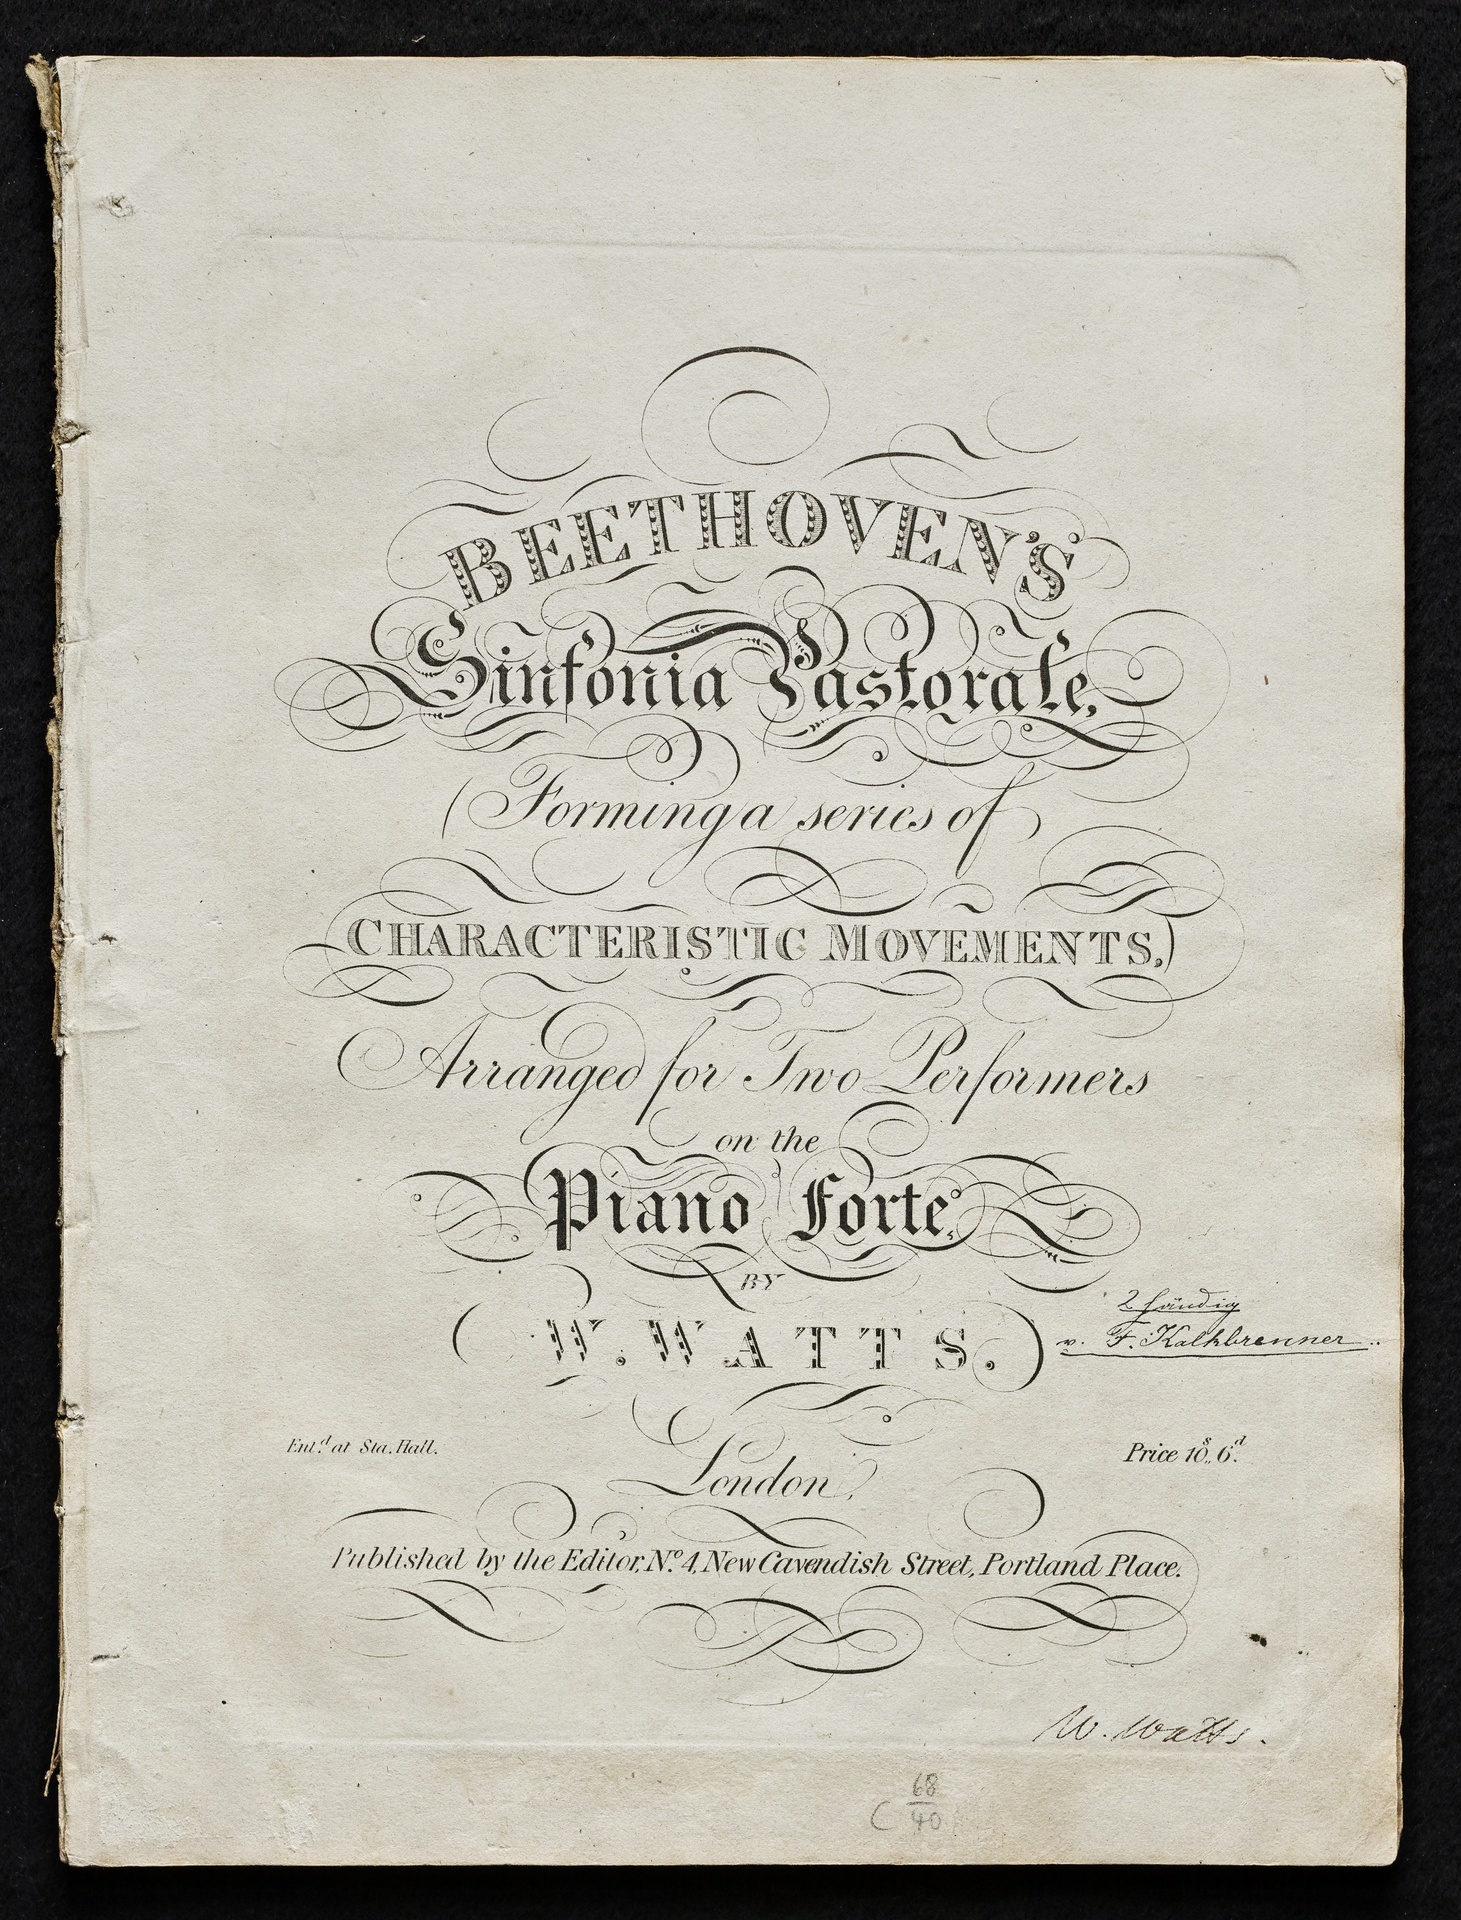 BEETHOVEN'S
Sinfonia Pastorale,
(Forming a series of
CHARACTERISTIC MOVEMENTS,)
Arranged for Two Performers
on the
Piano Forte,
BY
(W. WATTS.)
2 händig
v. F. Kalkbrenner..
Ent.d at Sta. Hall.
Price 10s,, 6d.
London,
Published by the Editor, No. 4, New Cavendish Street, Portland Place.
W. Watts.
C 68
40